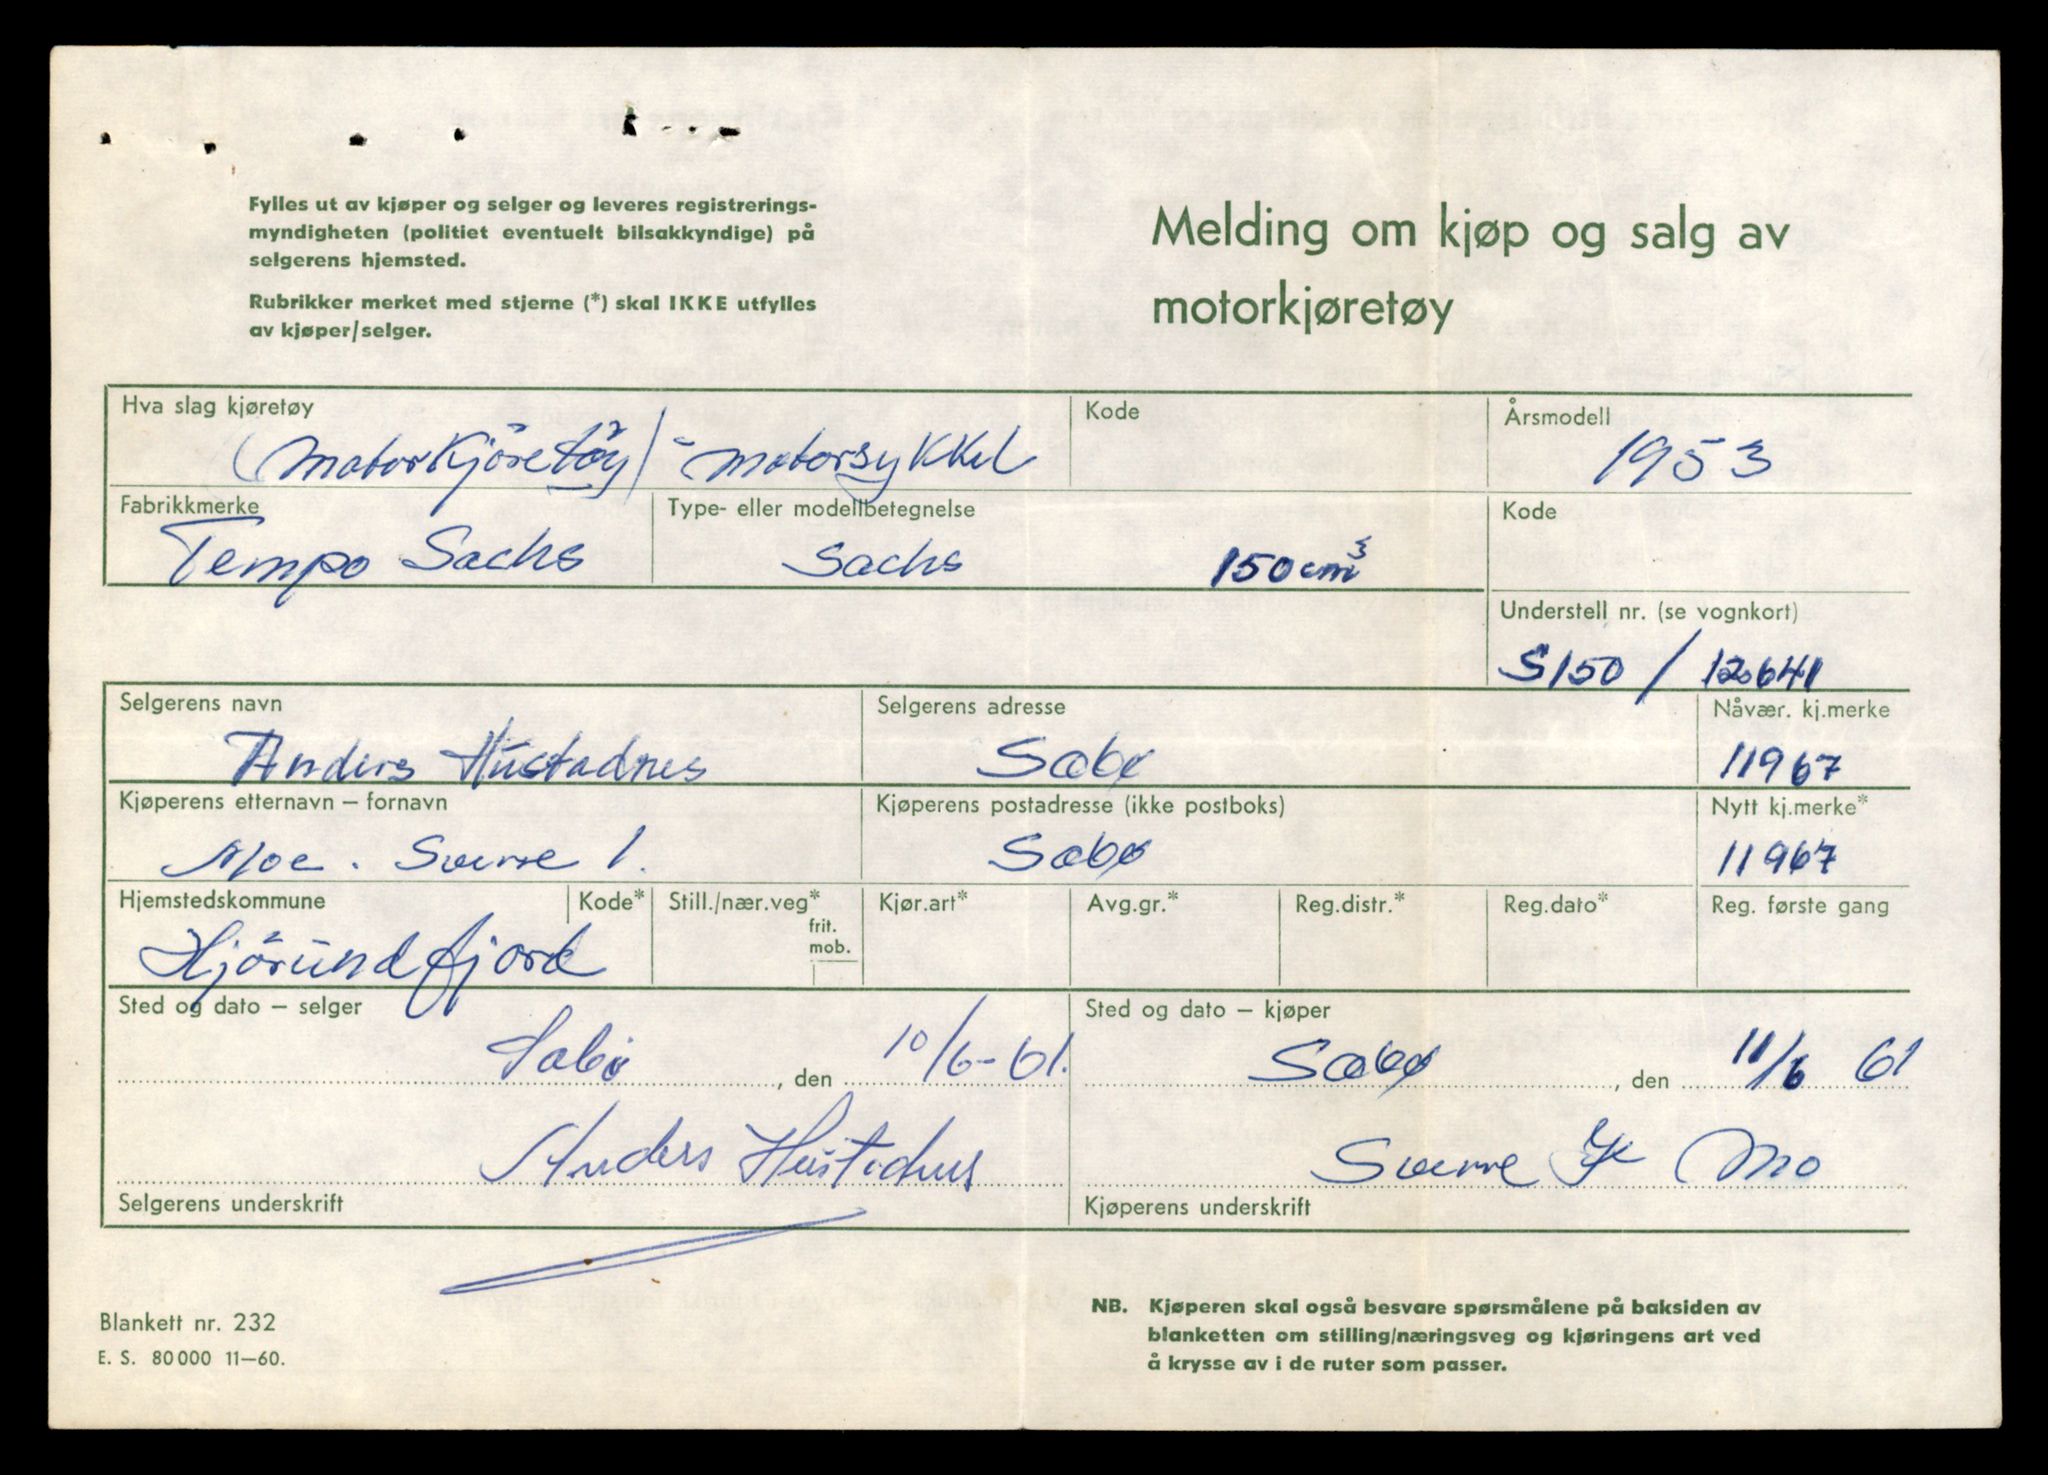 Fylles ut av kjøper og selger og leveres registrerings-
myndigheten (politiet eventuelt bilsakkyndige) på
selgerens hjemsted.
Rubrikker merket med stjerne (*) skal IKKE utfylles
av kjøper/selger.
Melding om kjøp og salg av
motorkjøretøy
Hva slag kjøretøy
Kode
Årsmodell
(Motorkjöretöy) - motorsykkel
1953
Fabrikkmerke
Type- eller modellbetegnelse
Kode
Tempo Sachs
Sachs
150 cm³
Understell nr. (se vognkort)
S150 / 12641
Selgerens navn
Selgerens adresse
Nåvær. kj.merke
Anders Hustadnes
Sæbø
11967
Kjøperens etternavn – fornavn
Kjøperens postadresse (ikke postboks)
Nytt kj.merke*
Moe. Sverre I.
Sæbø
11967
Hjemstedskommune
Kode*
Still./nær.veg*
frit.
mob.
Kjør.art*
Avg.gr.*
Reg.distr.*
Reg.dato*
Reg. første gang
Hjörundfjord
Sted og dato – selger
Sted og dato – kjøper
Sæbö, den 10/6-61.
Sæbø, den 11/6 61
Anders Hustadnes
Sverre Mo
Selgerens underskrift
Kjøperens underskrift
Blankett nr. 232
E. S. 80000 11–60.
NB. Kjøperen skal også besvare spørsmålene på baksiden av
blanketten om stilling/næringsveg og kjøringens art ved
å krysse av i de ruter som passer.